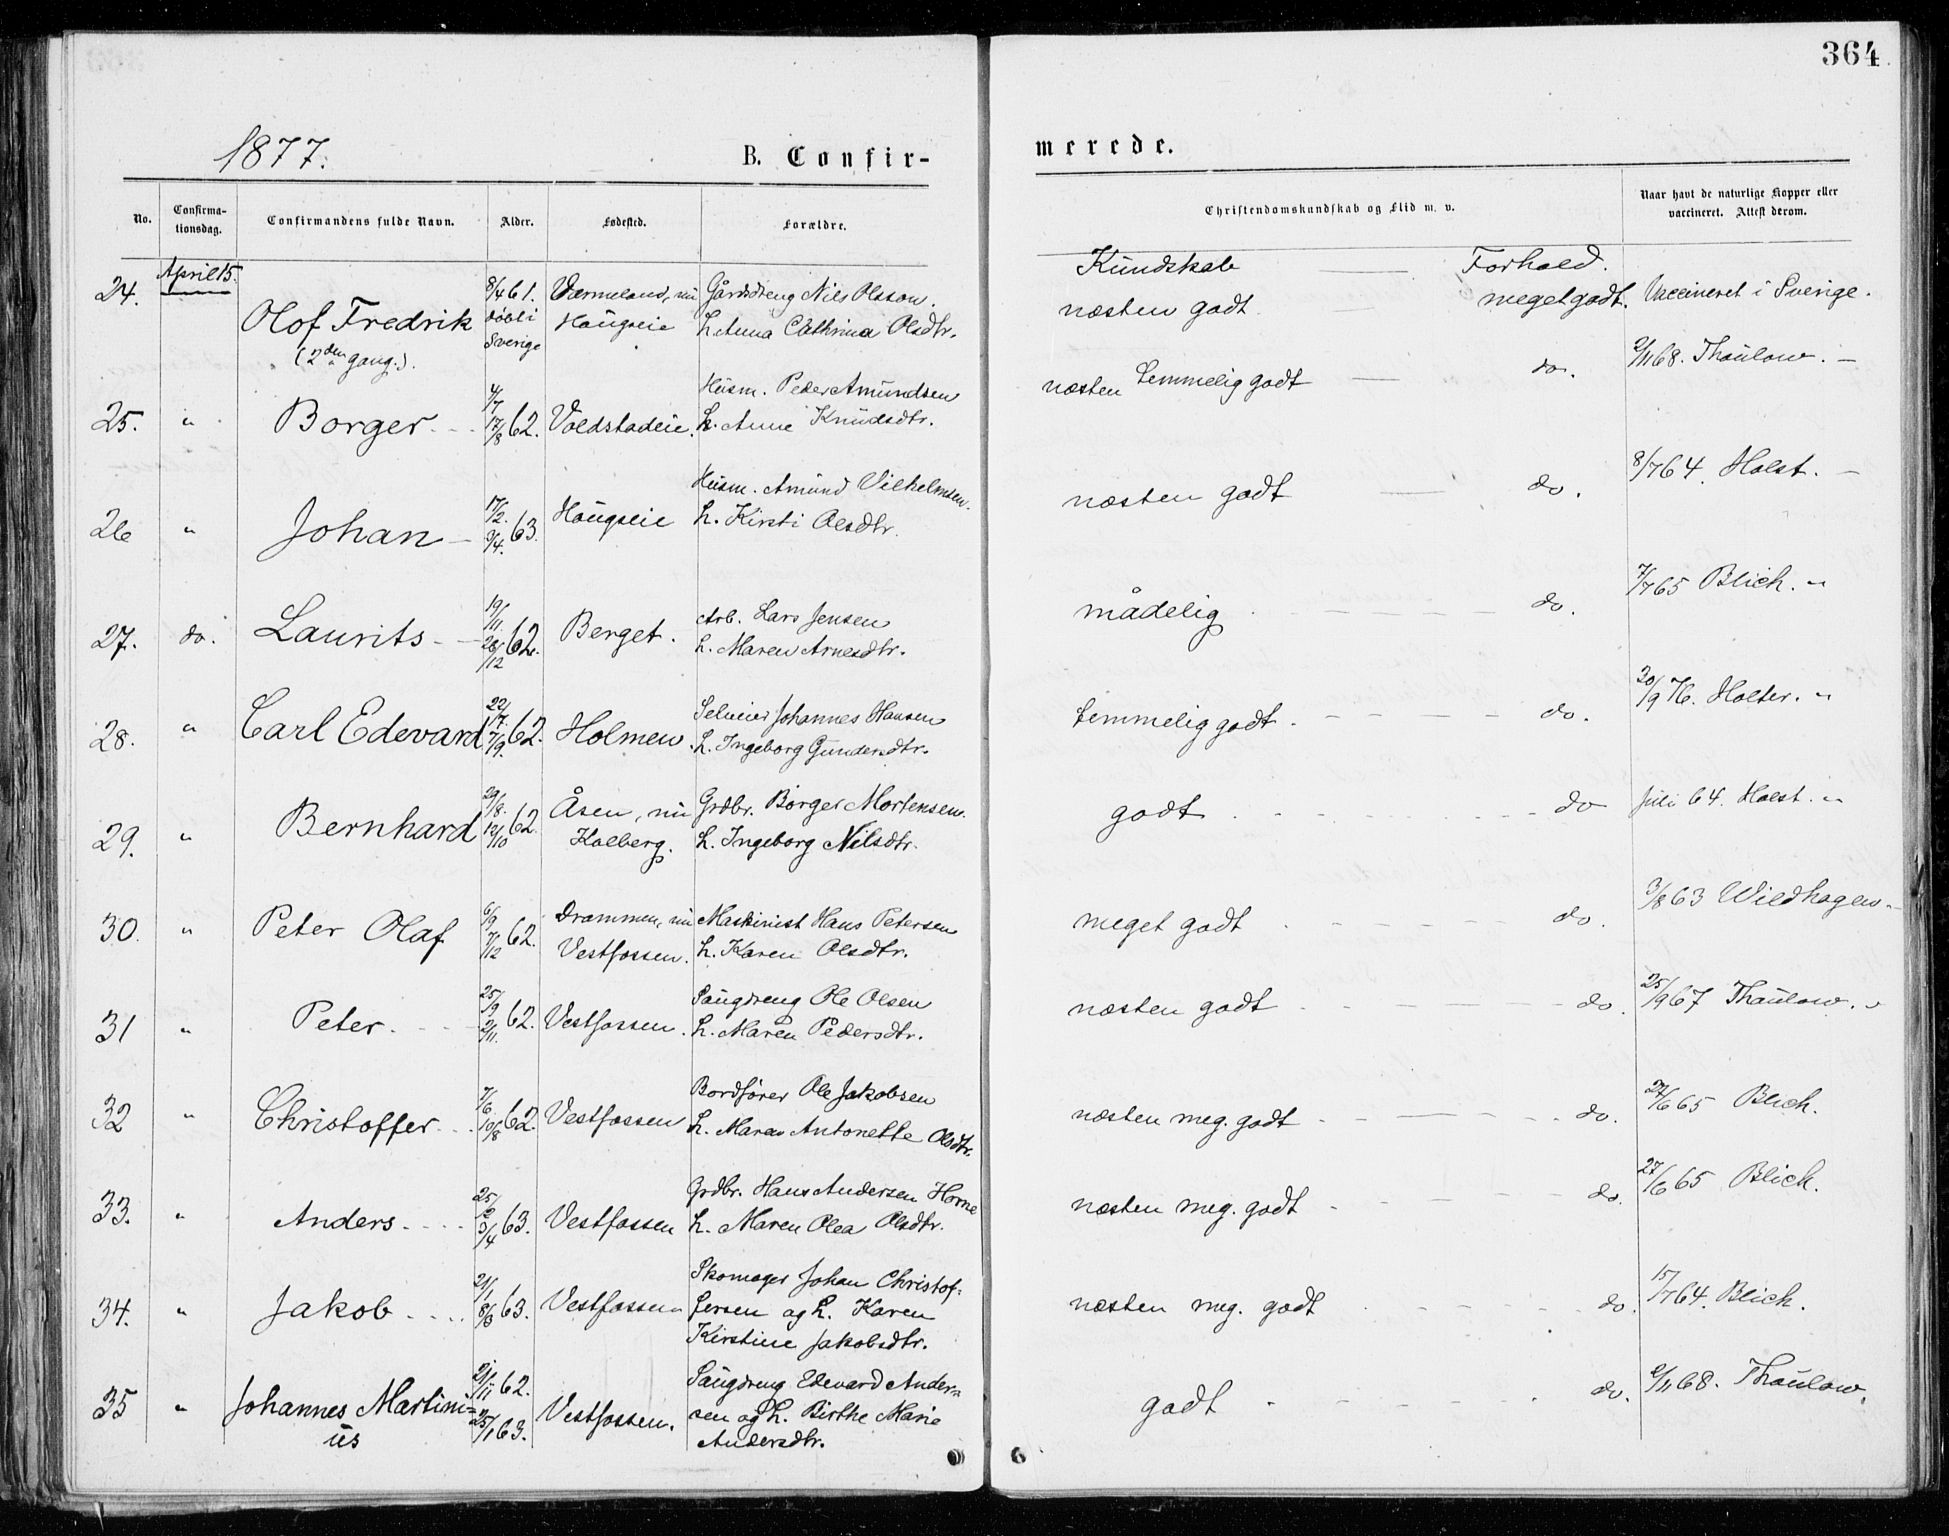 364
1877.
B. Confir-
merede.
No.
Confirma-
tionsdag.
Confirmandens fulde Navn.
Alder.
Fødested.
Forældre.
Christendomskundskab og Flid m. v.
Naar havt de naturlige Kopper eller
vaccineret. Attest derom.
Kundskab Forhold.
24. April 15. Olof Fredrik (2den gang.) 8/4 61. døbt i Sverige Værmeland, nu Haugseie Gårdsdreng Nils Olsson. h. Anna Cathrina Olsdtr. næsten godt meget godt. Vaccineret i Sverige.
25. " Borger 4/7 17/8 62. Voldstadeie. Husm. Peder Amundsen h. Anne Knudsdtr. næsten temmelig godt do. 2/11 68. Thaulow. —
26 " Johan 17/2. 3/4. 63. Haugseie Husm. Amund Vilhelmsen. h. Kirsti Olsdtr. næsten godt do. 8/7 64. Holst. —
27. do. Laurits 19/11. 26/12 62. Berget. Arb. Lars Jensen h. Maren Arnesdtr. mådelig do. 7/7 65 Blich. "
28. " Carl Edevard 22/7. 7/9. 62. Holmen. Selveier Johannes Hansen h. Ingeborg Gundersdtr. temmelig godt. do. 30/9 76. Holter. "
29. " Bernhard 29/8. 12/10 62. Åsen, nu Kolberg. Grdbr. Børger Mortensen. h. Ingeborg Nilsdtr. godt do Juli 64. Holst. "
30. " Peter Olaf 6/9 7/12 62. Drammen, nu Vestfossen. Maskinist Hans Petersen h. Karen Olsdtr. meget godt do. 3/8 63 Wildhagen
31 " Peter 25/9 2/11. 62. Vestfossen. Saugdreng Ole Olsen h. Maren Pedersdtr. næsten godt do. 25/9 67 Thaulow. "
32 " Christoffer 7/6. 10/8 62. Vestfossen Bordfører Ole Jakobsen h. Maren Antonette Olsdtr. næsten meg. godt do. 27/6 65 Blich.
33. " Anders 25/2 3/4 63. Vestfossen Grdbr. Hans Andersen Horne h. Maren Olea Olsdtr. næsten meg. godt do. 27/6 65 Blich.
34. " Jakob 21/1 8/3 63. Vestfossen Skomager Johan Christof-
fersen og h. Karen
Kirstine Jakobsdtr. næsten meg. godt do. 15/7 64. Blich.
35 " Johannes Martini=
us 21/11 62. 25/1 63. Vestfossen. Saugdreng Edevard Ander-
sen og h. Birthe Marie
Andersdtr. godt do. 2/11 68. Thaulow.